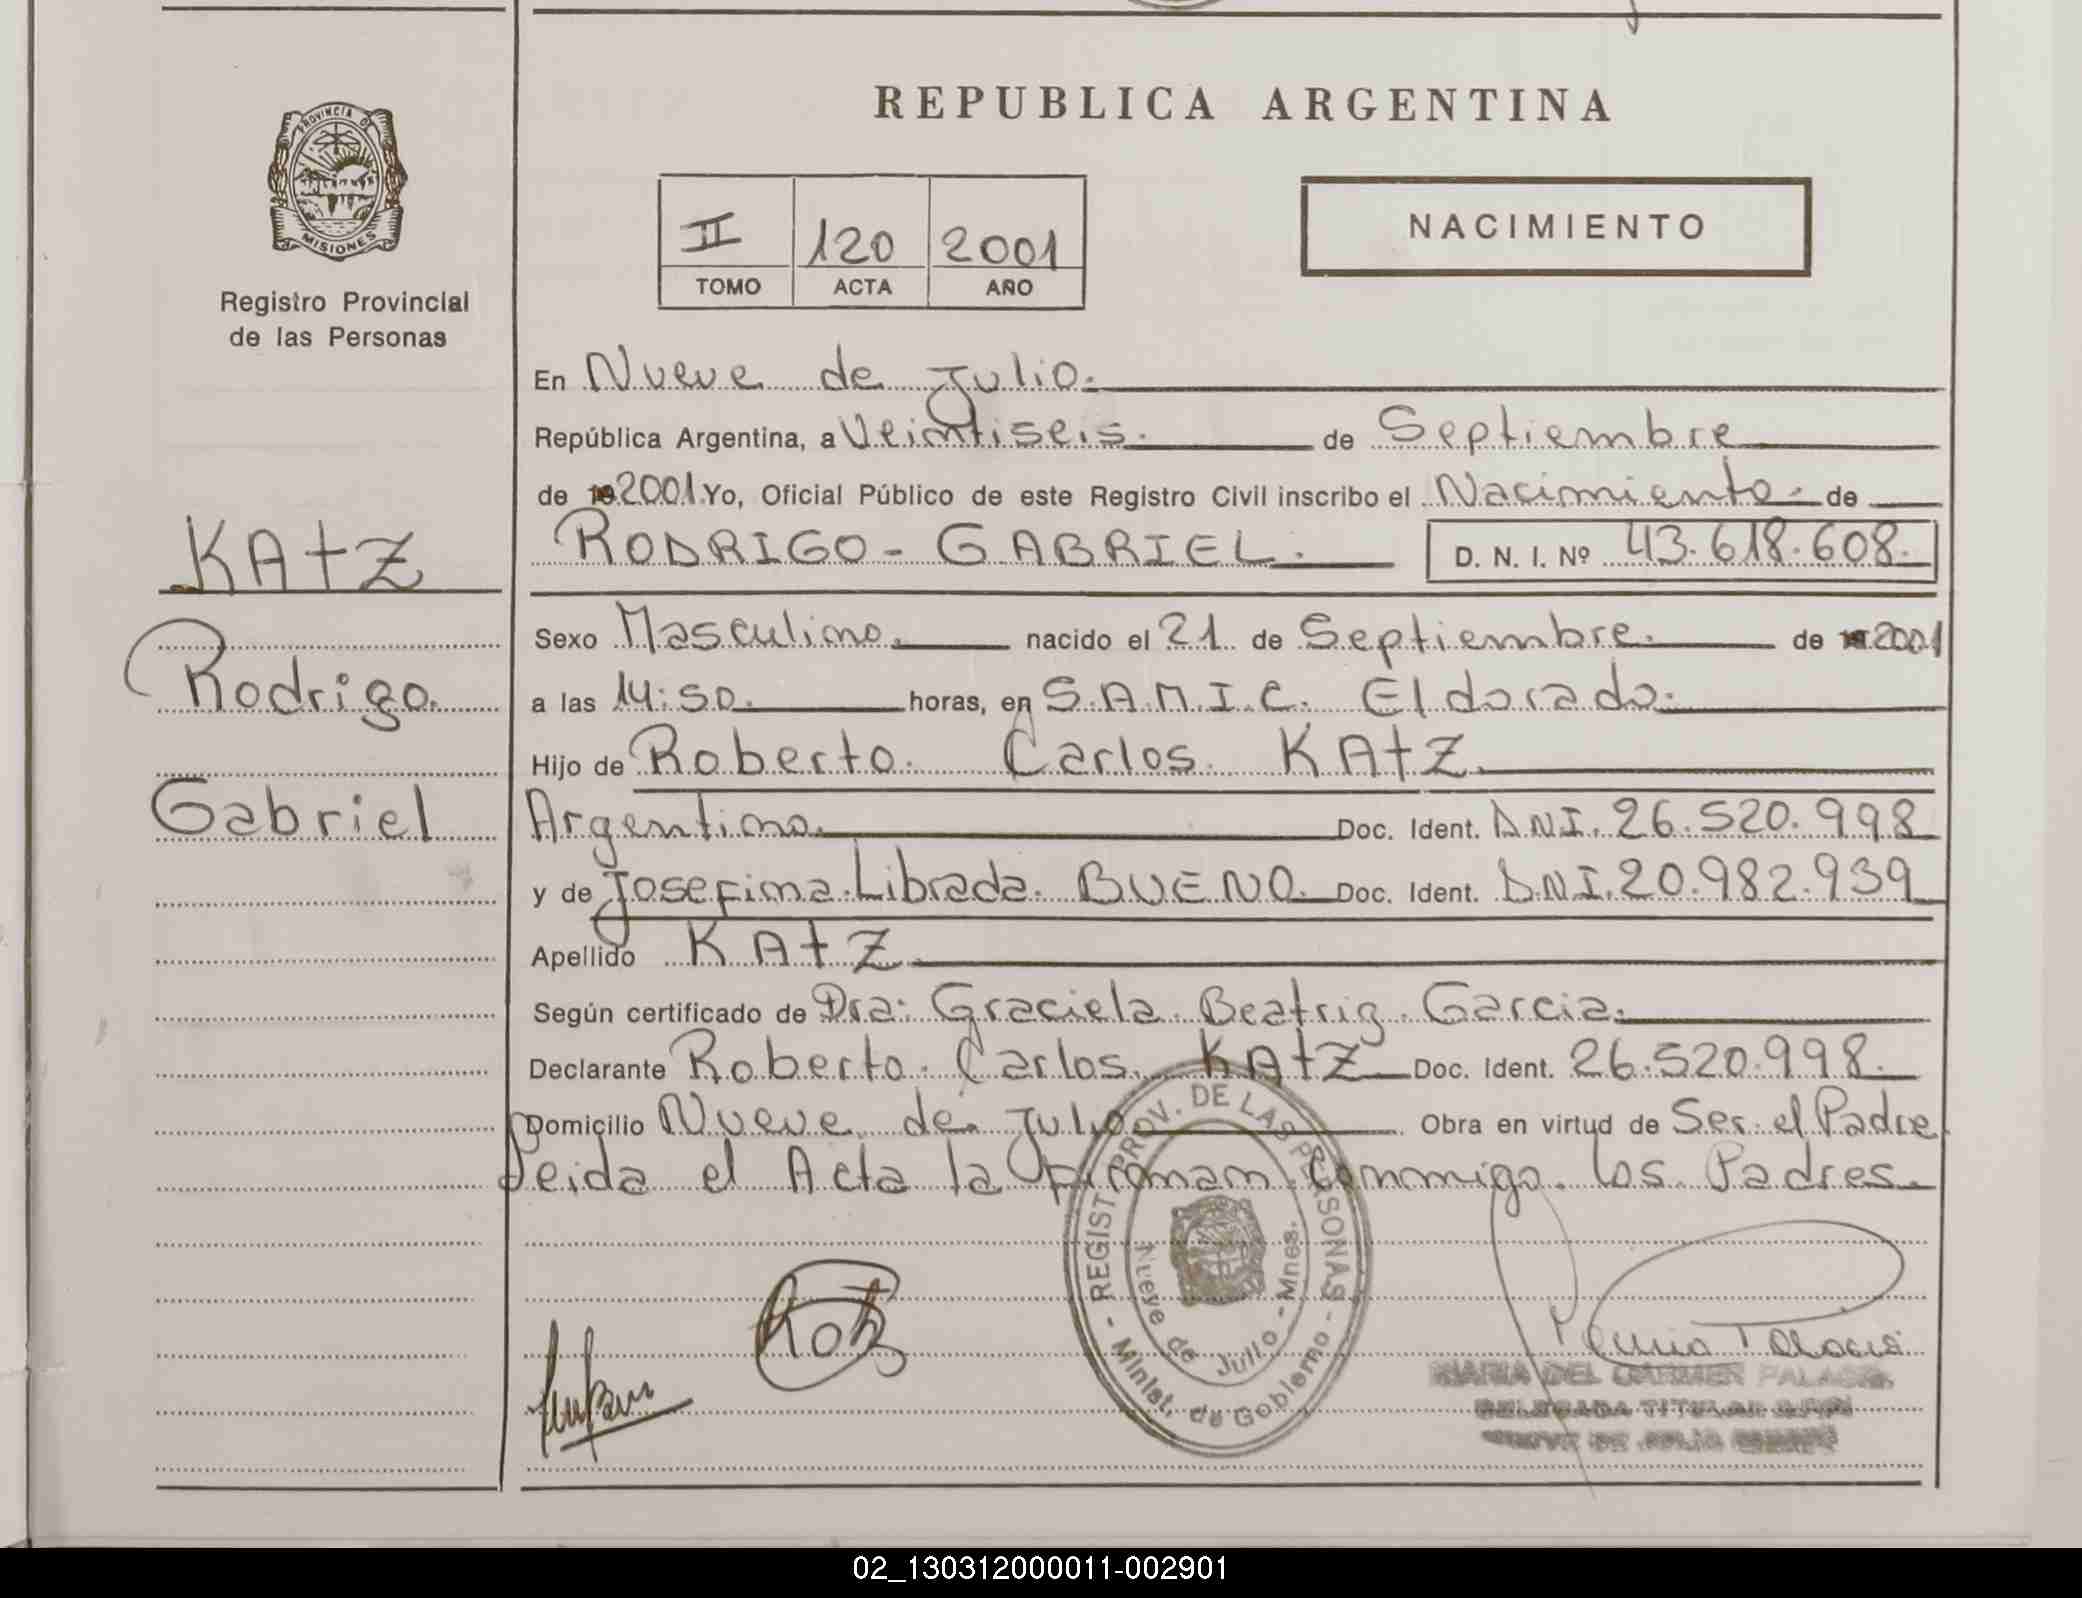 REPUBLICA ARGENTINA
PROVINCIA D
MISIONES
Registro Provincial
de las Personas
II 120 2001
TOMO ACTA AÑO
NACIMIENTO
En Nueve de Julio.
República Argentina, a Veintiseis. de Septiembre
de 19 2001 Yo, Oficial Público de este Registro Civil inscribo el Nacimiento. de
RODRIGO - GABRIEL. D. N. I. Nº 43.618.608.
KAtZ
Rodrigo.
Gabriel
Sexo Masculino. nacido el 21 de Septiembre. de 19 2001
a las 14:50. horas, en S.A.M.I.C. Eldorado.
Hijo de Roberto. Carlos. KAtZ.
Argentino. Doc. Ident. D.N.I. 26.520.998
y de Josefina. Librada. BUENO. Doc. Ident. D.N.I. 20.982.939
Apellido KAtZ
Según certificado de Dra: Graciela. Beatriz. Garcia.
Declarante Roberto. Carlos. KAtZ Doc. Ident. 26.520.998.
Domicilio Nueve de Julio Obra en virtud de Ser el Padre
Leida el Acta la firman conmigo los Padres.
REGIST. PROV. DE LAS PERSONAS
Nueve de Julio - Mnes.
- Minist. de Gobierno -
Katz
MARIA DEL CARMEN PALACIO
DELEGADA TITULAR
NUEVE DE JULIO
02_130312000011-002901